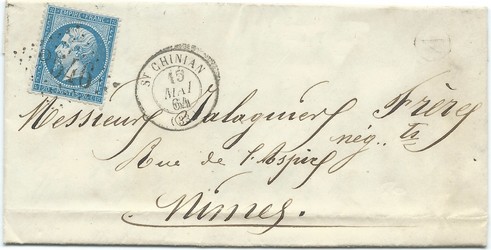 EMPIRE FRANC
ST CHINIAN
15
MAI
64
Messieurs Salaguier Frères
nég.. 
Rue de l'Aspic
Nimes.